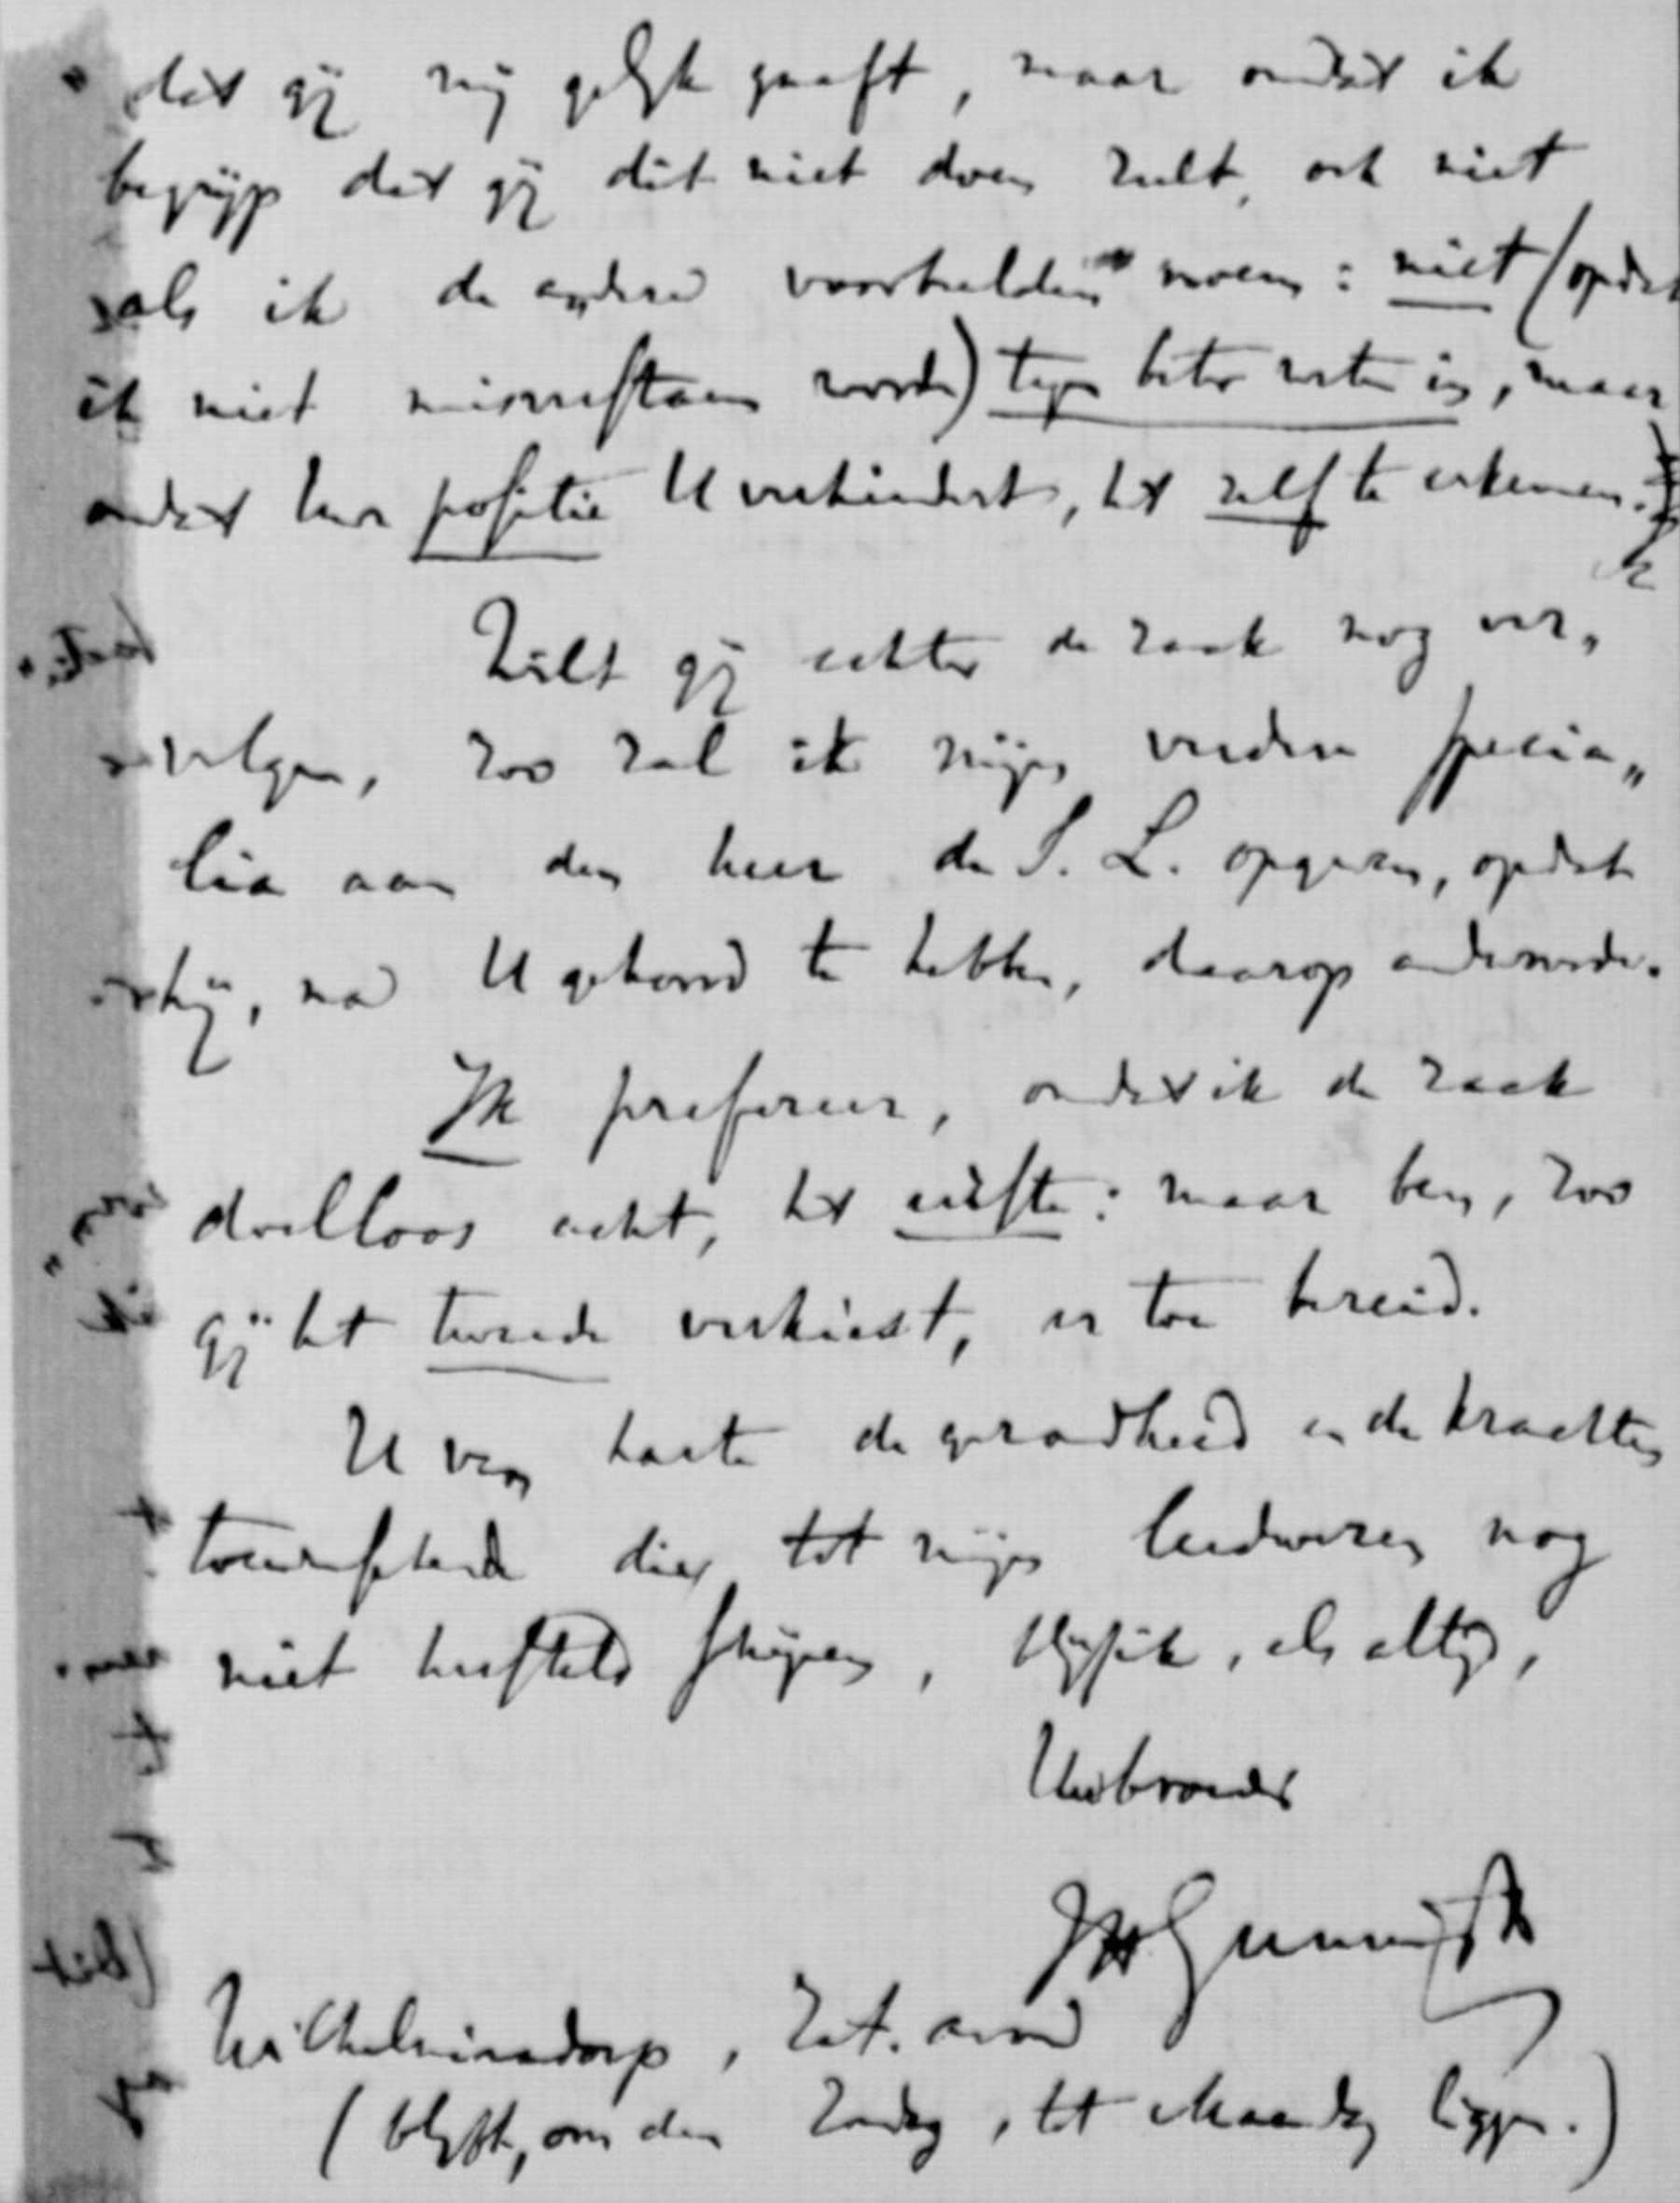 dat gij mij gelijk gaaft, maar omdat ik
begrijp dat gij dit niet doen zult, ook niet
als ik de andere voorbeelden noem: niet (opdat
ik niet misverstaan worde) tegen beter weten in, maar
omdat Uwe positie U verhindert, het zelf te erkennen.
Wilt gij echter de zaak nog ver„
volgen, zoo zal ik mijne verdere specia„
lia aan den heer de S. L. opgeven, opdat
hij, na U gehoord te hebben, daarop antwoorde.
Ik prefereer, omdat ik de zaak
doelloos acht, het eerste: maar ben, zoo
gij het tweede verkiest, er toe bereid.
U van harte de gezondheid en de krachten
toewenschende die, tot mijn leedwezen, nog
niet hersteld schijnen, blijf ik, als altijd,
Uwbroeder
JHGunning JHz
Wilhelminadorp, Zat. avond
(blijft, om den Zondag, tot Maandag liggen.)